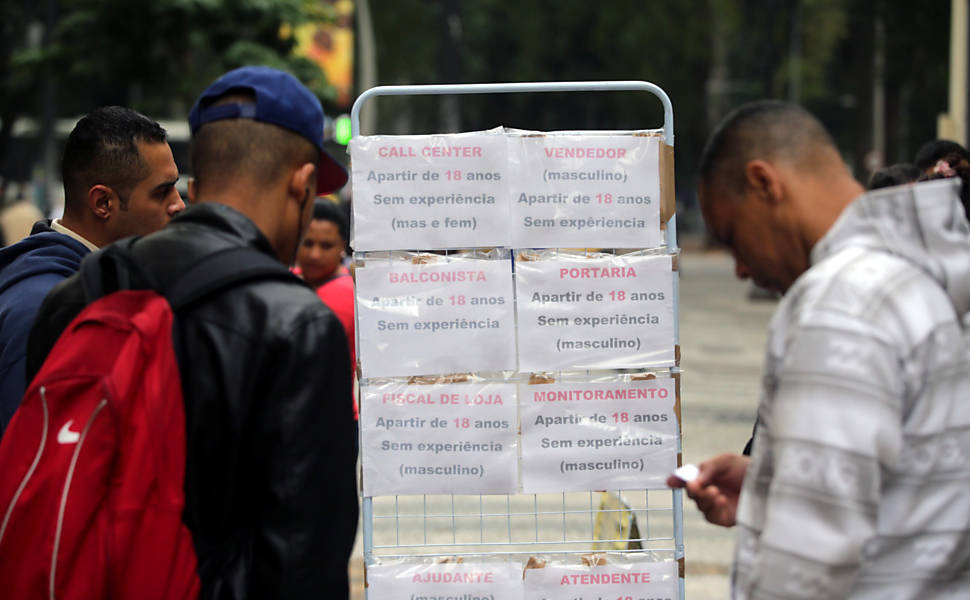 CALL CENTER
Apartir de 18 anos
Sem experiência
(mas e fem)
VENDEDOR
(masculino)
Apartir de 18 anos
Sem expêriencia
BALCONISTA
Apartir de 18 anos
Sem experiência
PORTARIA
Apartir de 18 anos
Sem experiência
(masculino)
FISCAL DE LOJA
Apartir de 18 anos
Sem experiência
(masculino)
MONITORAMENTO
Apartir de 18 anos
Sem experiência
(masculino)
AJUDANTE
(masculino)
ATENDENTE
Apartir de 18 anos